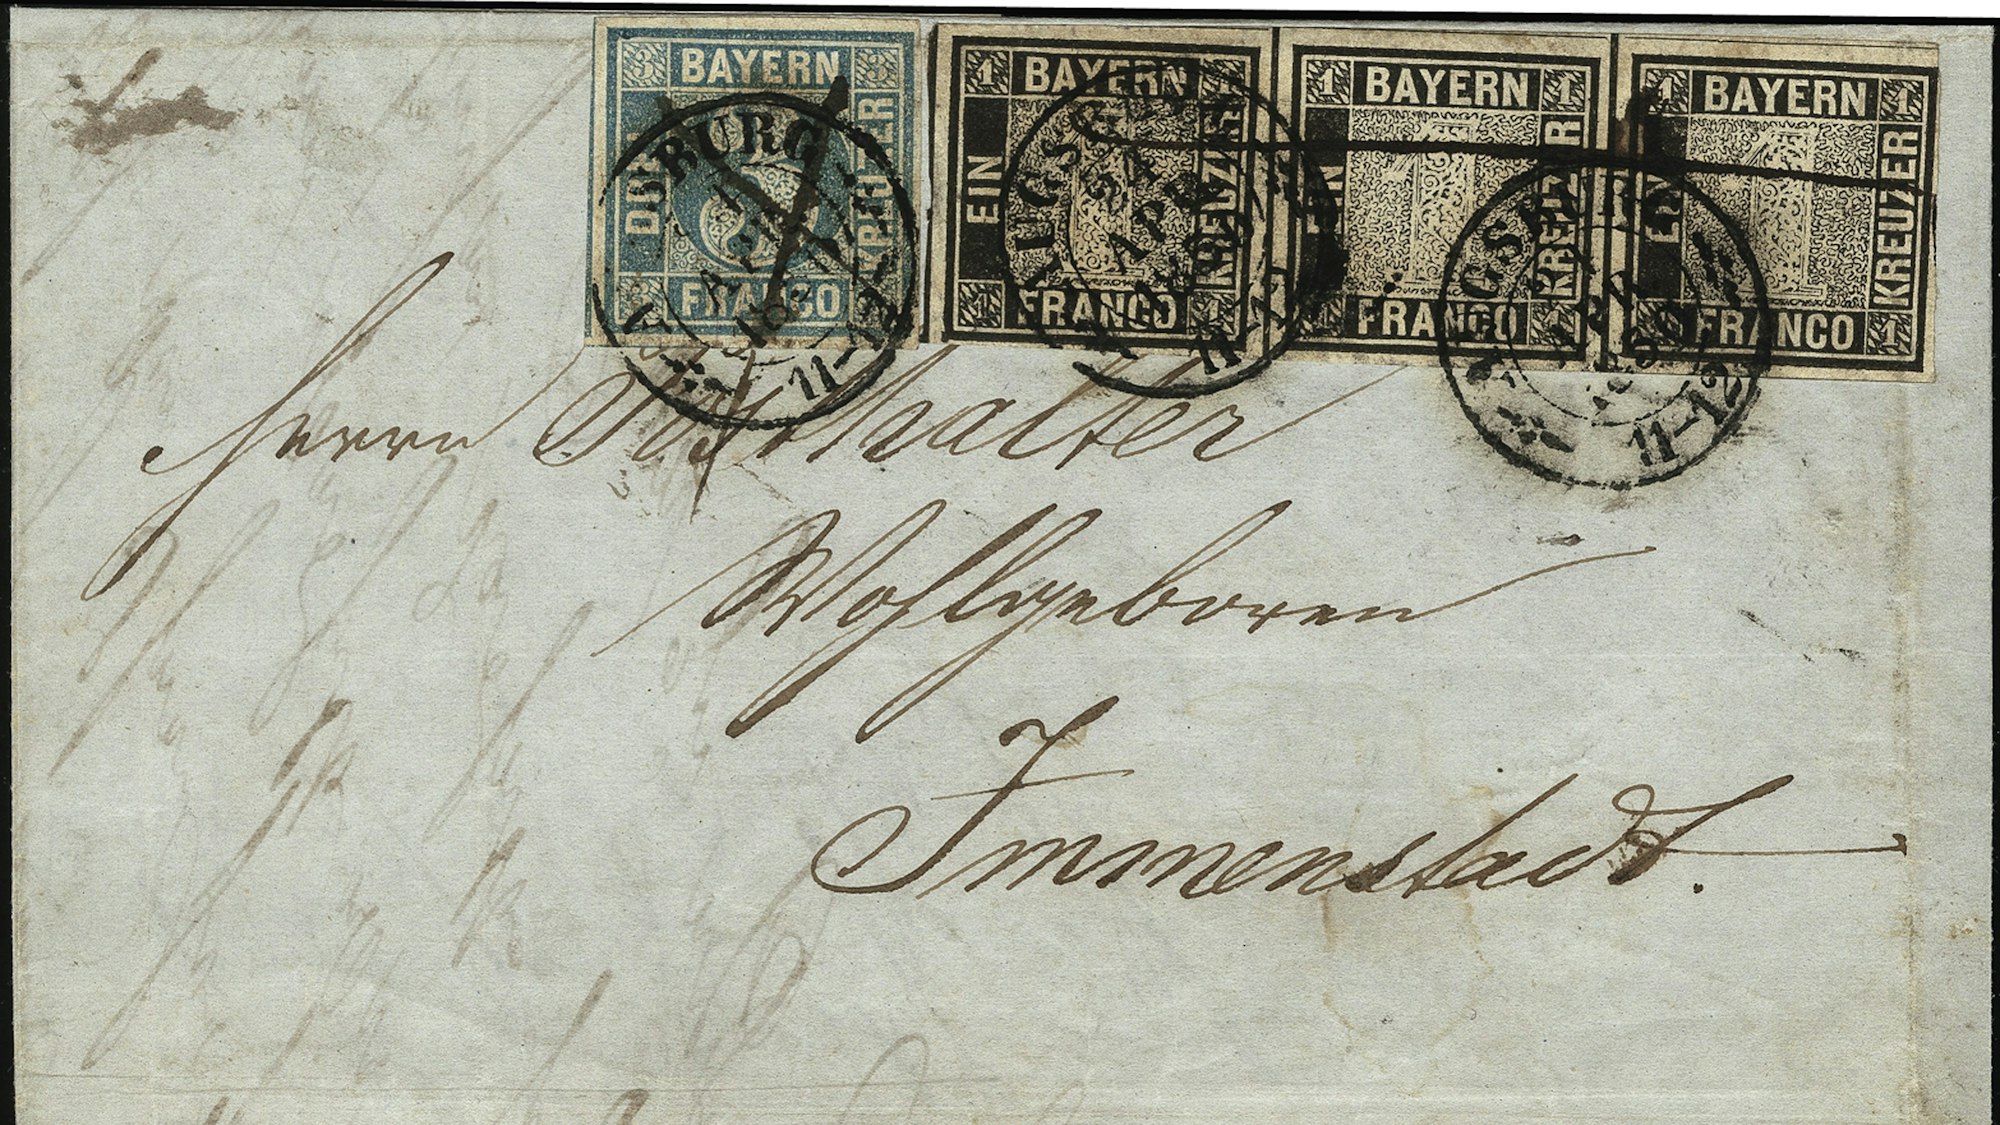 3 BAYERN 3
DREI KREUZER
FRANCO
1 BAYERN 1
EIN KREUZER
1 FRANCO 1
1 BAYERN 1
EIN KREUZER
FRANCO
1 BAYERN 1
EIN KREUZER
FRANCO 1
AUGSBURG
APR
11-12
AUGSBURG
APR
11-12
AUGSBURG
APR
11-12
Herrn Posthalter
Wohlgeboren
Immenstadt.